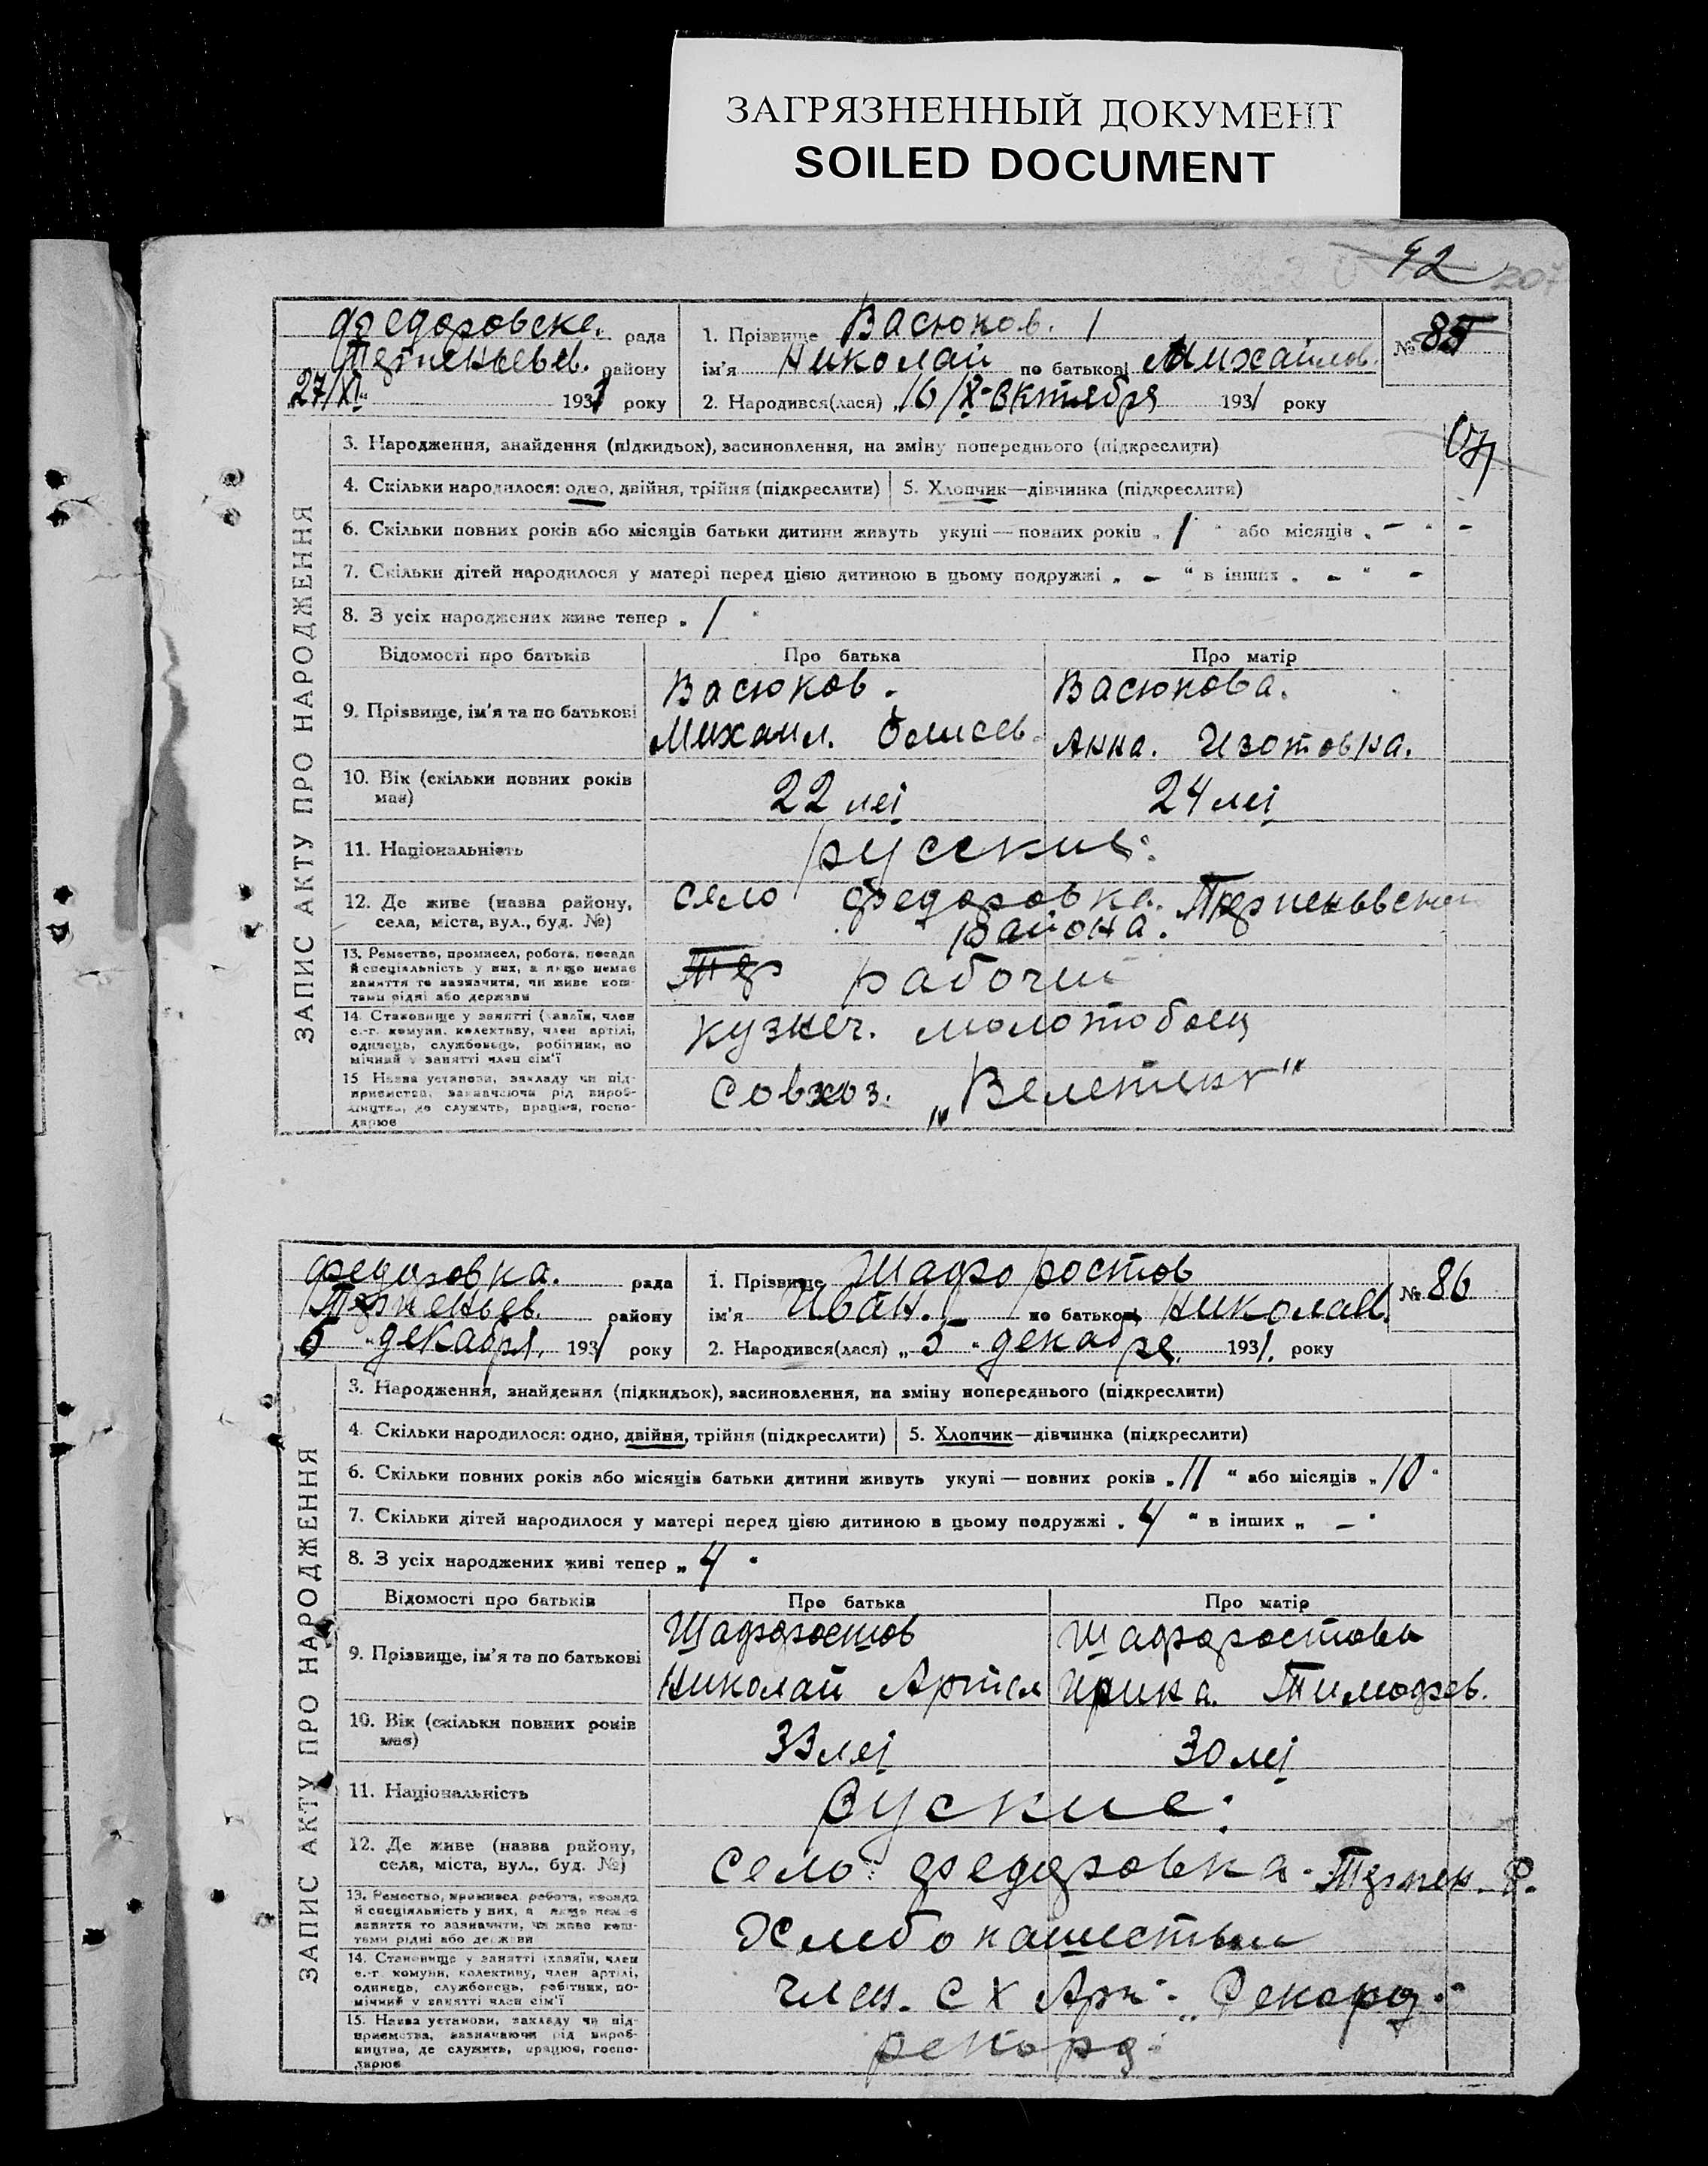 ЗАГРЯЗНЕННЫЙ ДОКУМЕНТ
SOILED DOCUMENT
92
207
Федоровск. рада
Терпеньев. району
27/XI 1931 року
1. Прізвище Васюков. 1
ім'я Николай по батькові Михайлов.
2. Народився(лася) 16/X-Октября 1931 року
№ 85
ЗАПИС АКТУ ПРО НАРОДЖЕННЯ
3. Народження, знайдення (підкидьох), засиновлення, на зміну попереднього (підкреслити)
4. Скільки народилося: одно, двійня, трійня (підкреслити) 5. Хлопчик—дівчинка (підкреслити)
6. Скільки повних років або місяців батьки дитини живуть укупі — повних років „ 1 " або місяців „ - "
7. Скільки дітей народилося у матері перед цією дитиною в цьому подружжі „ - " в інших „ - "
8. З усіх народжених живе тепер „ 1 "
Відомості про батьків Про батька Про матір
9. Прізвище, ім'я та по батькові
Васюков. Васюкова.
Михаил. Анна. Изотовна.
10. Вік (скільки повних років має) 22 лет 24 лет
11. Національність русские.
12. Де живе (назва району, села, міста, вул., буд. №) село Федоровка. Терпеньевском
района.
13. Ремество, промисел, робота, посада й спеціяльність у них, а якщо немає заняття то зазначити, чи живе коштами рідні або держави
Тер рабочий
14. Становище у занятті (хавяїн, член с.-г. комуни, колективу, член артілі, одинець, службовець, робітник, помічний у занятті член сім'ї
кузнеч. молотобоец
15 Назва установи, закладу чи підприємства, зазначаючи рід виробництва, де служить, працює, господарює
Совхоз.
Федоровка. рада
Терпеньев. району
5 " декабря. 1931 року
1. Прізвище Шафоростов
ім'я Иван. по батькові Николаев.
2. Народився(лася) „ 5 " декабря. 1931. року
№ 86
ЗАПИС АКТУ ПРО НАРОДЖЕННЯ
3. Народження, знайдення (підкидьок), засиновлення, на зміну попереднього (підкреслити)
4. Скільки народилося: одно, двійня, трійня (підкреслити) 5. Хлопчик—дівчинка (підкреслити)
6. Скільки повних років або місяців батьки дитини живуть укупі — повних років „ 11 " або місяців „ 10 "
7. Скільки дітей народилося у матері перед цією дитиною в цьому подружжі „ 4 " в інших „ - "
8. З усіх народжених живі тепер „ 4 "
Відомості про батьків Про батька Про матір
9. Прізвище, ім'я та по батькові
Шафоростов Шафоростова
Николай Артем Ирина. Тимофев.
10. Вік (скільки повних років має) 33 лет 30 лет
11. Національність Руские.
12. Де живе (назва району, села, міста, вул., буд. №) село: Федоровка. Терпен. Р.
13. Ремество, промисел, робота, посада й спеціяльність у них, а якщо немає заняття то зазначити, чи живе коштами рідні або держави
14. Становище у занятті (хавяїн, член с.-г. комуни, колективу, член артілі, одинець, службовець, робітник, помічний у занятті член сім'ї
член. С Х Арт. „Рекорд"
15. Назва установи, закладу чи підприємства, зазначаючи рід виробництва, де служить, працює, господарює
рекорд.